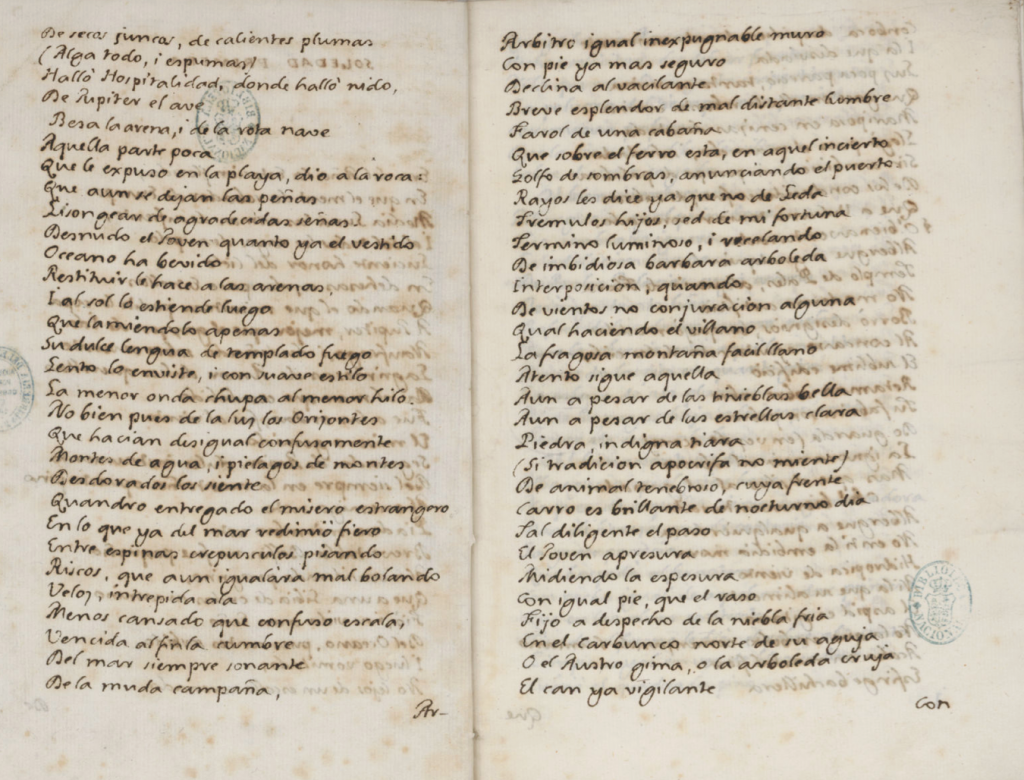 De secos juncos, de calientes plumas
(Alga todo, i espumas)
Hallò Hospitalidad, donde hallò nido,
De Jupiter el ave
Besa la arena, i de la rota nave
Aquella parte poca
Que le expuso en la playa, dio a la roca:
Que aun se dejan las peñas
Lisongear de agradecidas señas.
Desnudo el Joven quanto ya el vestido
Oceano ha bevido
Restituir le hace a las arenas,
I al sol lo estiende luego
Que lamiendolo apenas
Su dulce lengua de templado fuego
Lento lo enviste, i con suave estilo
La menor onda chupa al menor hilo.
No bien pues de la luz los Orizontes
Que hacian desigual confusamente
Montes de agua, i pielagos de montes
Desdorados los siente
Quandro entregado el misero estrangero
En lo que ya del mar redimiò fiero
Entre espinas crepusculos pisando
Riscos, que aun igualàra mal bolando
Veloz, intrepida ala
Menos cansado que confuso escala,
Vencida al fin la cumbre
Del mar siempre sonante
De la muda campaña,
Ar-
Arbitro igual inexpugnable muro
Con pie ya mas seguro
Declina al vacilante
Breve esplendor de mal distante lumbre
Farol de una cabaña
Que sobre el ferro esta, en aquel incierto
Golfo de sombras, anunciando el puerto
Rayos les dice ya que no de Leda
Tremulos hijos, sed de mi fortuna
Termino luminoso, i recelando
De imbidiosa barbara arboleda
Interposicion, quando
De vientos no conjuracion alguna
Qual haciendo el villano
La fragosa montaña facil llano
Atento sigue aquella
Aun a pesar de las tinieblas bella
Aun a pesar de las estrellas clara
Piedra, indigna tiara
(Si tradicion apocrifa no miente)
De animal tenebroso, cuya frente
Carro es brillante de nocturno dia
Tal diligente el paso
El Joven apresura
Midiendo la espesura
Con igual pie, que el raso
Fijo a despecho de la niebla fria
En el Carbunco norte de su aguja
O el Austro gima, o la arboleda cruja
El can ya vigilante
Con